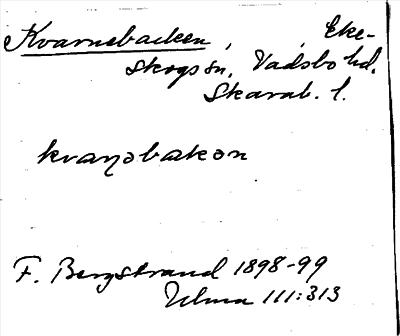 Kvarnebacken, , Eke-
skogs sn, Vadsbo hd.
Skarab. l.
kvaɳəbakən
F. Bergstrand 1898-99
Ulma 111:313